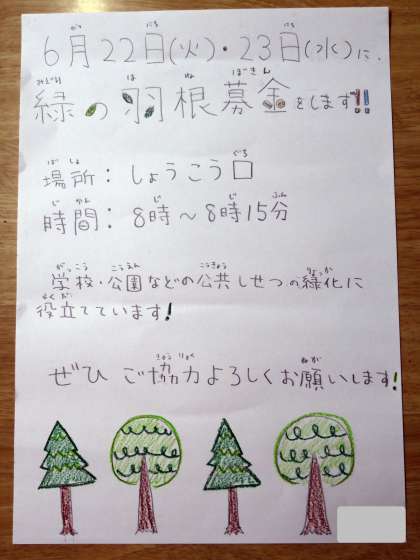 6月22日(火)・23日(水)に、
緑の羽根募金をします!!
場所：しょうこう口
時間：8時〜8時15分
学校・公園などの公共しせつの緑化に
役立てています!
ぜひ ご協力よろしくお願いします!